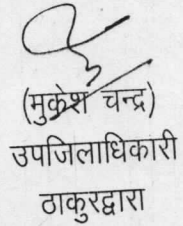 (मुकेश चन्द्र)
उपजिलाधिकारी
ठाकुरद्वारा